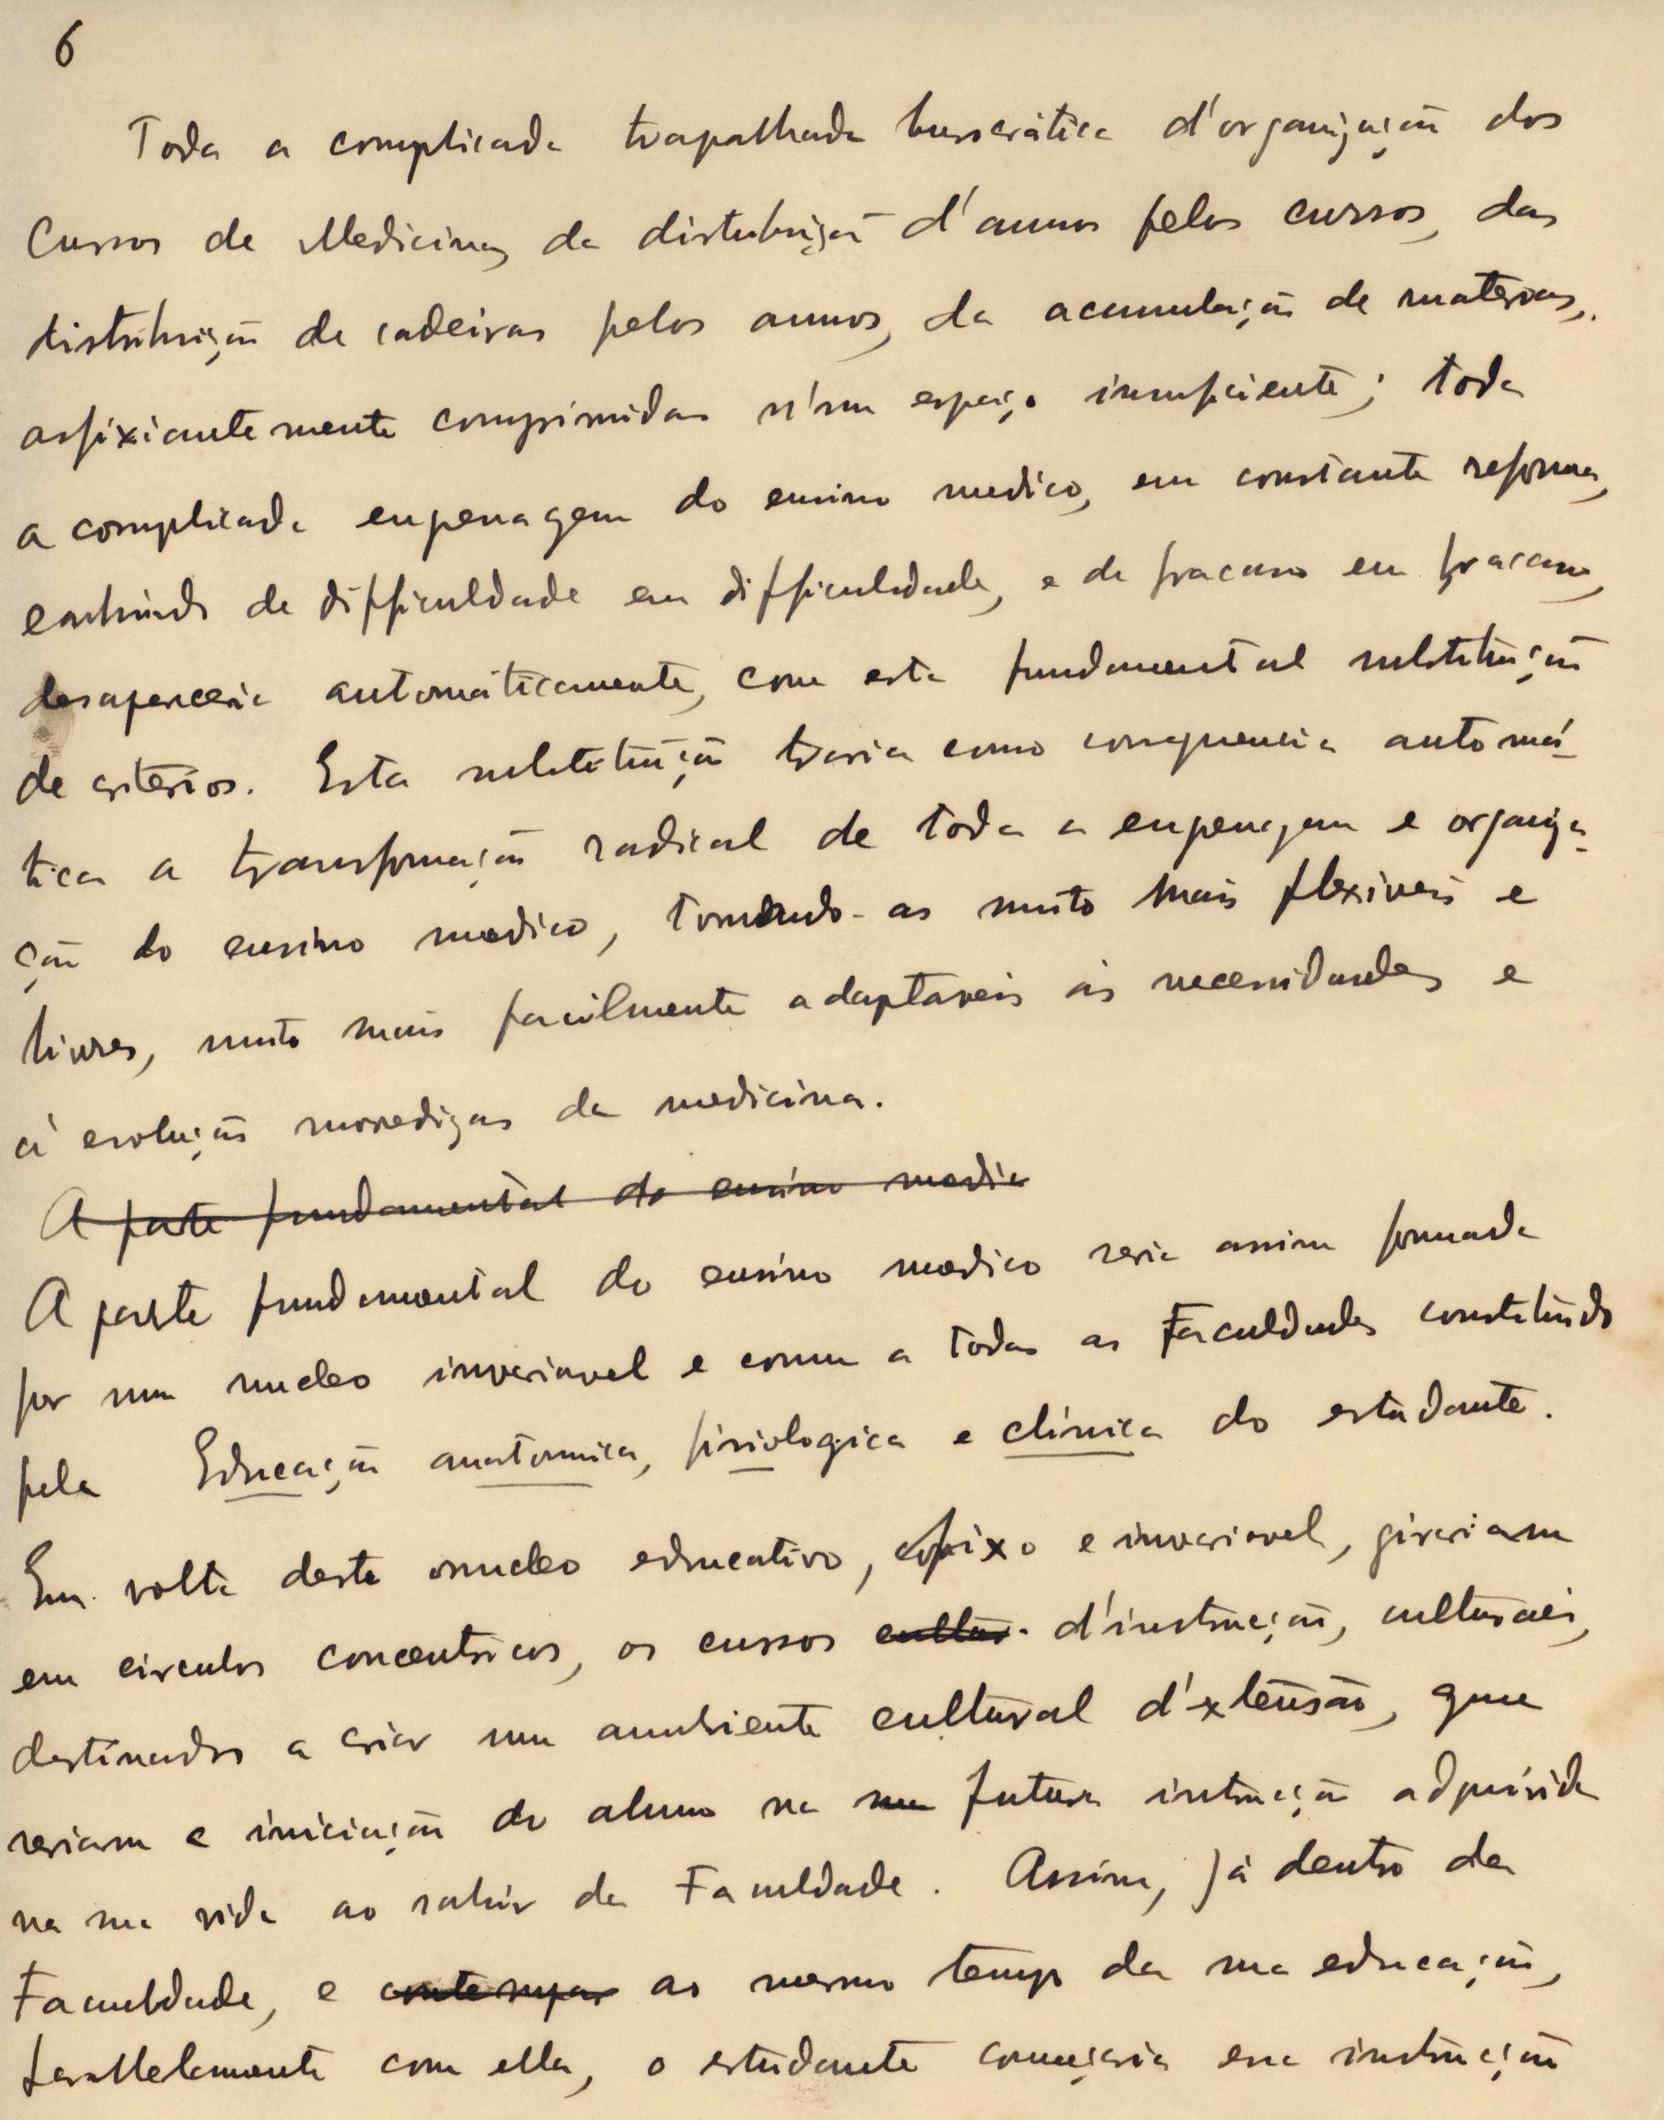 6
Toda a complicada trapalhada burocrática d'organização dos
Cursos de Medicina, da distribuição d'annos pelos cursos, das
distribuição de cadeiras pelos annos, da acumulação de materias,
asfixiantemente comprimidas n'um espaço insuficiente; toda
a complicada engrenagem do ensino medico, em constante reforma,
cahindo de difficuldade em difficuldade, e de fracasso em fracasso,
desapareceria automáticamente, com esta fundamental substituição
de criterios. Esta substituição traria como consequencia automá-
tica a transformação radical de toda a engrenagem e organiza-
ção do ensino medico, tornando-as muito mais flexiveis e
livres, muito mais facilmente adaptaveis ás necessidades e
á evolução movediças da medicina.
A parte fundamental do ensino medic
A parte fundamental do ensino medico seria assim formada
por um nucleo invariavel e comum a todas as Faculdades constituido
pela Educação anatomica, fisiologica e clínica do estudante.
Em volta deste nucleo educativo, fixo e invariavel, girariam
em circulos concentricos, os cursos cultur d'instrucção, culturais,
destinados a criar um ambiente cultural d'extensão, que
seriam a iniciação do aluno na sua futura instrucção adquirida
na sua vida ao sahir da Faculdade. Assim, já dentro da
Faculdade, e contempor ao mesmo tempo da sua educação,
parallelamente com ella, o estudante começaria essa instrucção